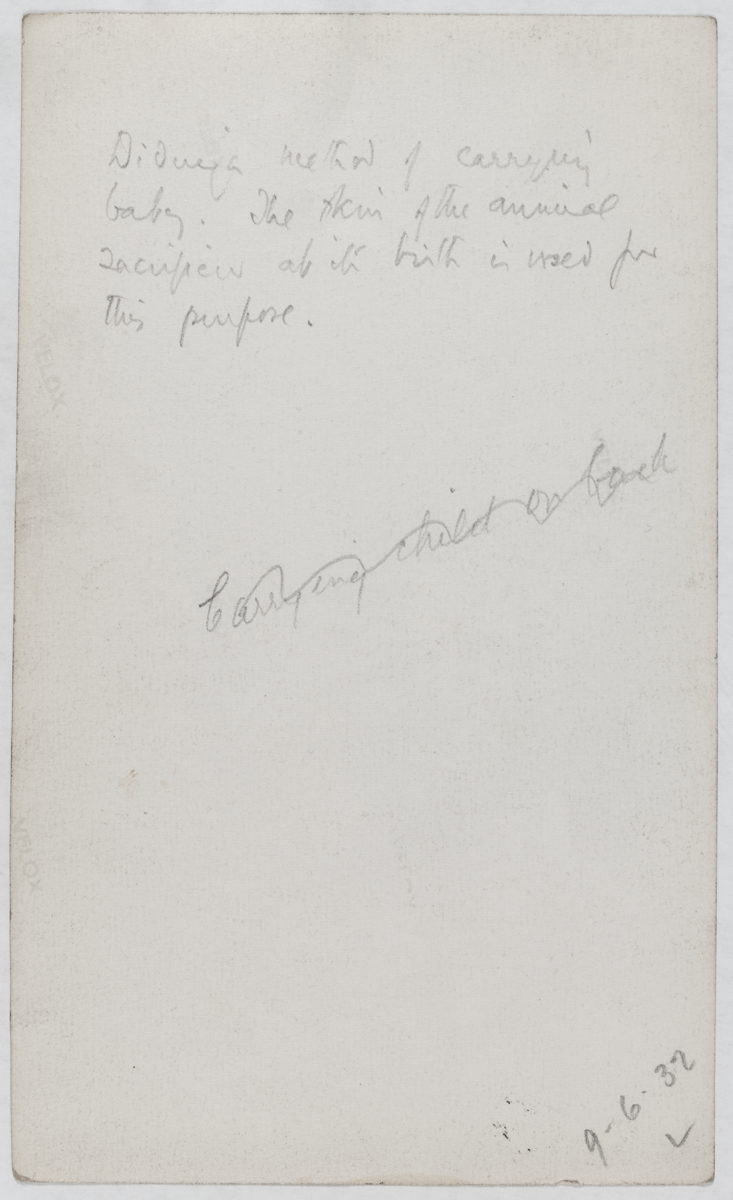 Didinga method of carrying
baby. The skin of the animal
sacrificed at its birth is used for
this purpose.
VELOX
Carrying child on back
VELOX
9-6-32